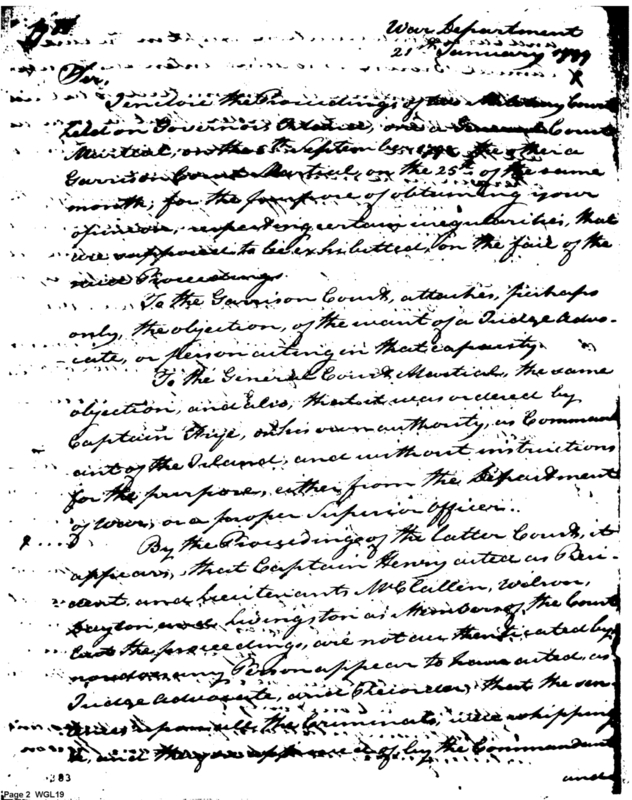 War Department
21st January 1799
Sir,
I enclose the Proceedings, of two Military Courts
held on Governors Island, one a General Court
Martial, on the 5th September the other a
Garrison Court Martial, on the 25th of the same
month, for the purpose of obtaining your
opinion, respecting certain irregularities, that
are supposed to be exhibitted, on the face of the
said Proceedings.
To the Garrison Court, attaches, perhaps
only, the objection, of the want of a Judge Advo-
cate, or person acting in that capacity.
To the General Court Martial, the same
objection, and also, that it was ordered by
Captain Frye, on his own authority, as Command
ant of the Island, and without instructions
for the purpose, either from the Department
of War, or a proper Superior Officer.
By the Proceedings of the latter Court, it
appears, that Captain Henry acted as Presi-
dent, and Lieutenants McClallen, Wilson,
Dayton and Livingston as Members of the Court
the proceedings, are not authenticated by
any Person appear to have acted, as
Judge Advocate, and Recorder, that the sen
tences upon all the Criminals, were whipping
&, and they are approved of by the Commandant
and
383
Page 2 WGL19